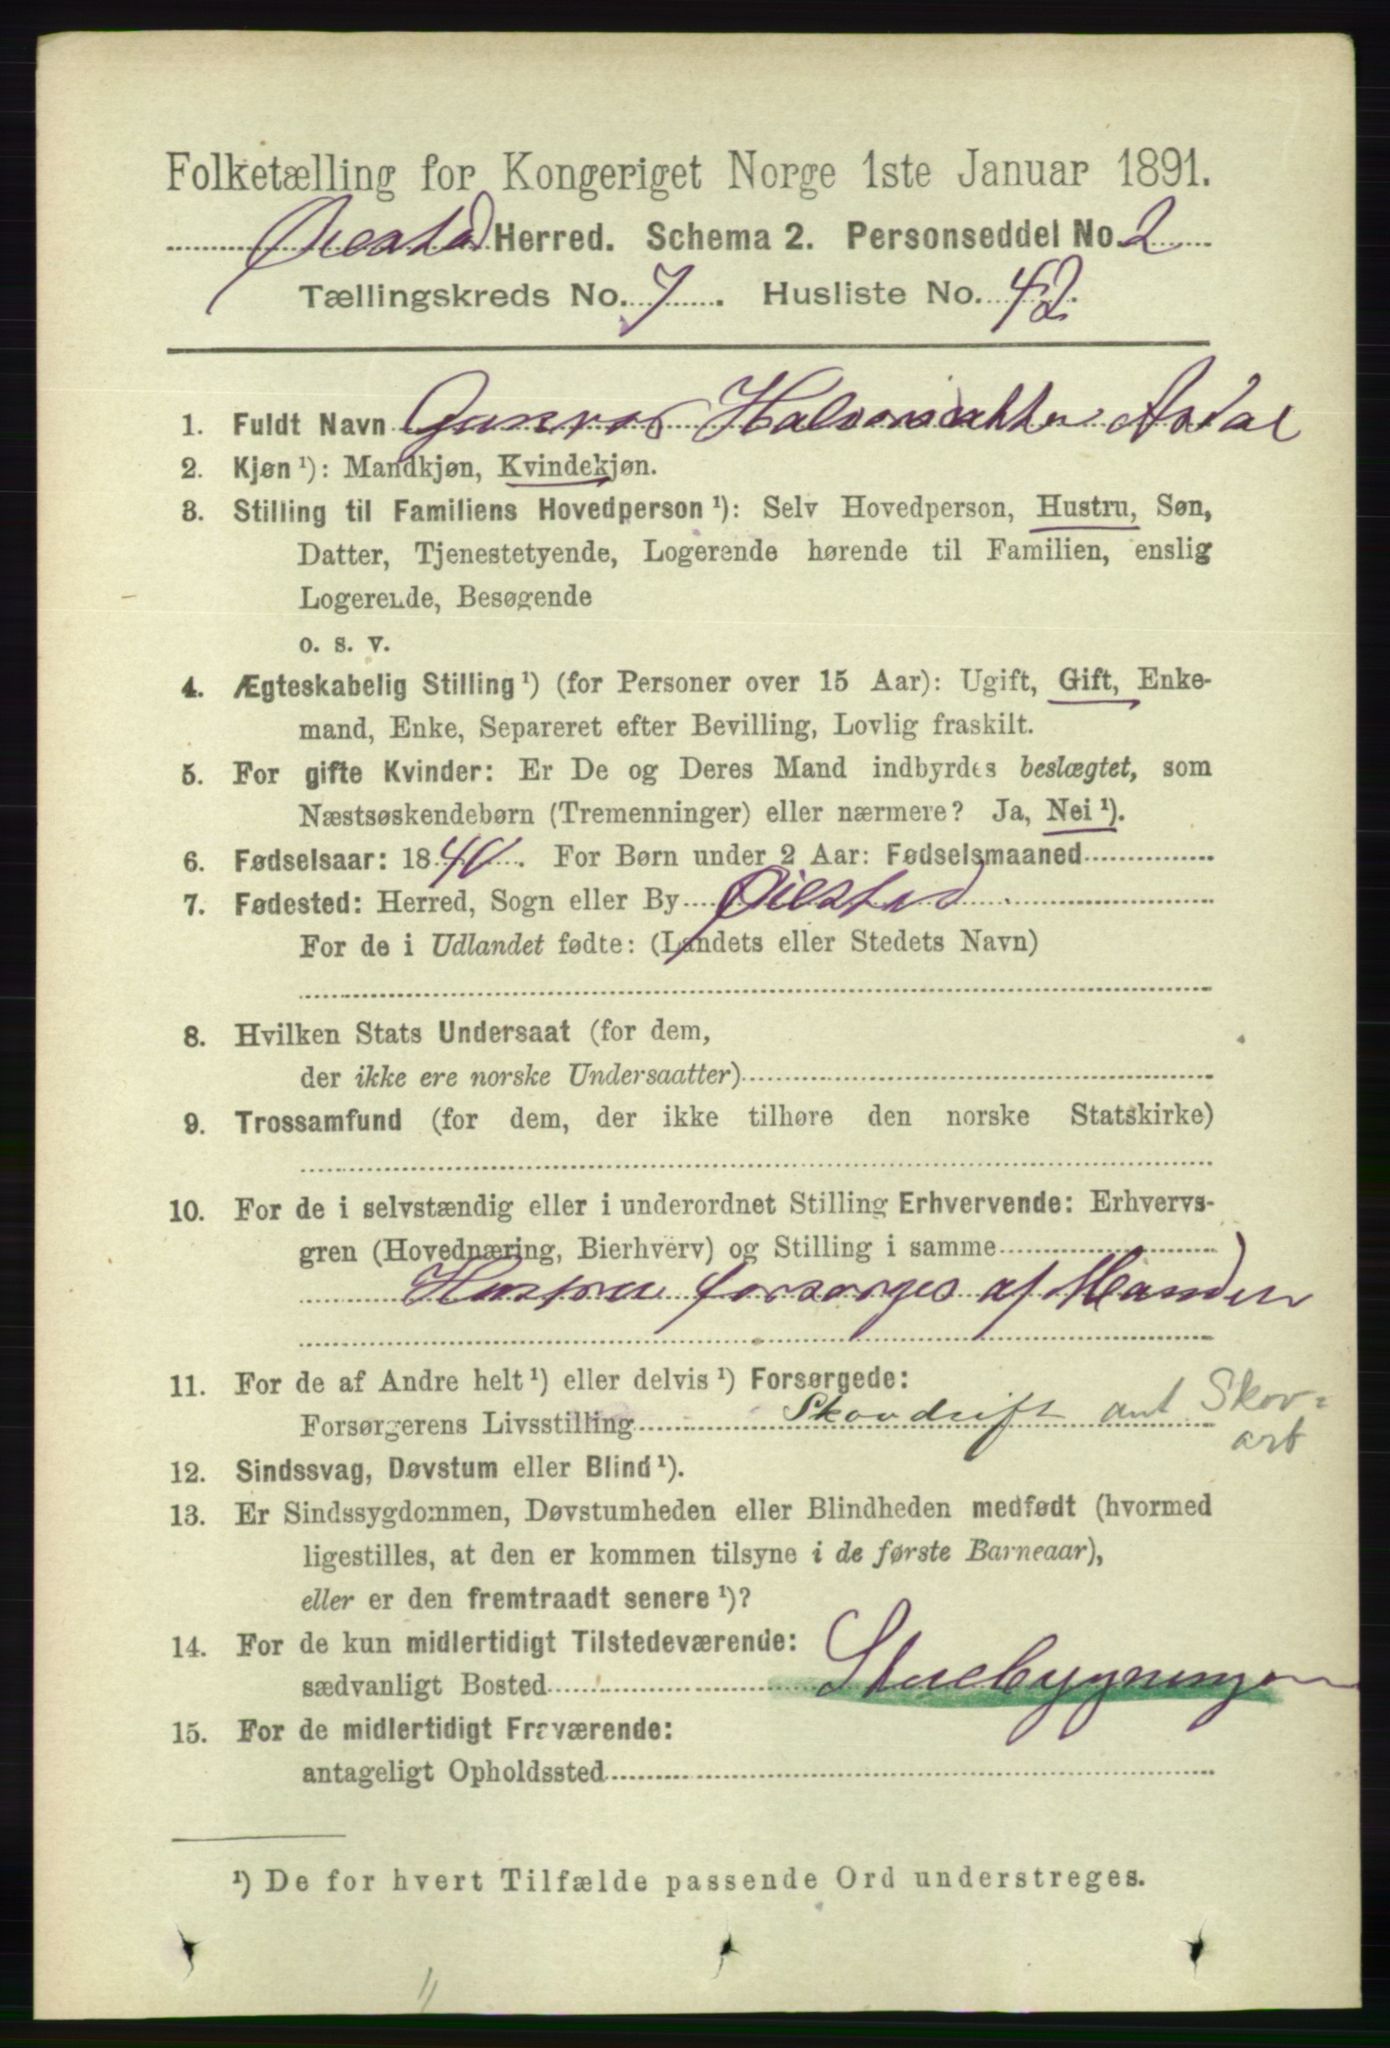 Folketælling for Kongeriget Norge 1ste Januar 1891.
Øiestad Herred. Schema 2. Personseddel No. 2
Tællingskreds No. 7. Husliste No. 42.
1. Fuldt Navn Gunvor Halvorsdatter
2. Kjøn ¹): Mandkjøn, Kvindekjøn.
3. Stilling til Familiens Hovedperson ¹): Selv Hovedperson, Hustru, Søn,
Datter, Tjenestetyende, Logerende hørende til Familien, enslig
Logerende, Besøgende
o. s. v.
4. Ægteskabelig Stilling ¹) (for Personer over 15 Aar): Ugift, Gift, Enke-
mand, Enke, Separeret efter Bevilling, Lovlig fraskilt.
5. For gifte Kvinder: Er De og Deres Mand indbyrdes beslægtet, som
Næstsøskendebørn (Tremenninger) eller nærmere? Ja, Nei ¹).
6. Fødselsaar: 18 . For Børn under 2 Aar: Fødselsmaaned
7. Fødested: Herred, Sogn eller By Øiestad
For de i Udlandet fødte: (Landets eller Stedets Navn)
8. Hvilken Stats Undersaat (for dem,
der ikke ere norske Undersaatter)
9. Trossamfund (for dem, der ikke tilhøre den norske Statskirke)
10. For de i selvstændig eller i underordnet Stilling Erhvervende: Erhvervs-
gren (Hovednæring, Bierhverv) og Stilling i samme
Hustru forsørges af Manden
11. For de af Andre helt ¹) eller delvis ¹) Forsørgede:
Forsørgerens Livsstilling Skovdrift ant Skov-
arb
12. Sindssvag, Døvstum eller Blind ¹).
13. Er Sindssygdommen, Døvstumheden eller Blindheden medfødt (hvormed
ligestilles, at den er kommen tilsyne i de første Barneaar),
eller er den fremtraadt senere ¹)?
14. For de kun midlertidigt Tilstedeværende:
sædvanligt Bosted Stuebygningen
15. For de midlertidigt Fraværende:
antageligt Opholdssted
¹) De for hvert Tilfælde passende Ord understreges.